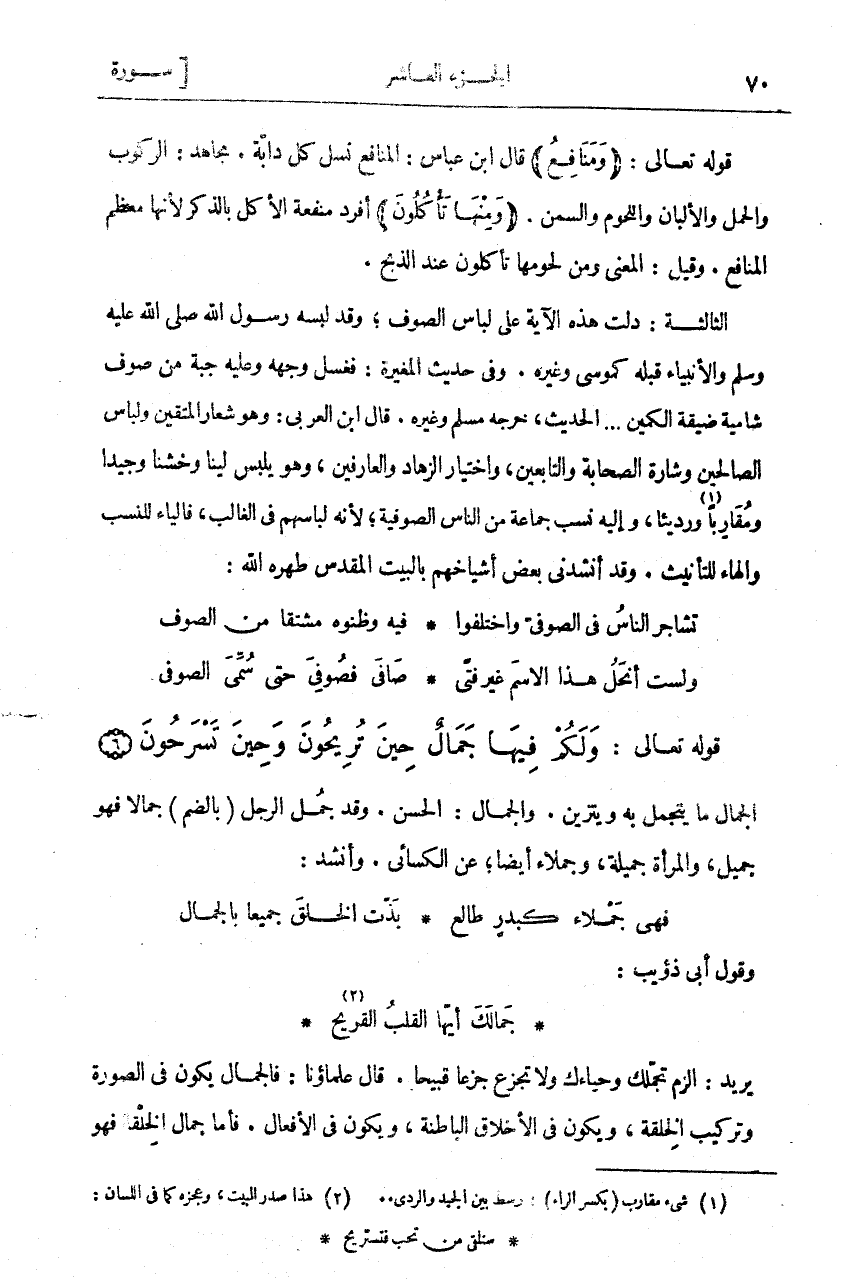 ٧٠ الجزء العاشر [ سورة
قوله تعالى : ﴿ وَمَنَافِعُ ﴾ قال ابن عباس : المنافع نسل كل دابّة . مجاهد : الركوب
والحمل والألبان واللحوم والسمن . ﴿ وَمِنْهَا تَأْكُلُونَ ﴾ أفرد منفعة الأكل بالذكر لأنها معظم
المنافع . وقيل : المعنى ومن لحومها تأكلون عند الذبح .
الثالثــة : دلت هذه الآية على لباس الصوف ؛ وقد لبسه رسول الله صلى الله عليه
وسلم والأنبياء قبله كموسى وغيره . وفى حديث المغيرة : فغسل وجهه وعليه جبة من صوف
شامية ضيقة الكمين ... الحديث، خرجه مسلم وغيره . قال ابن العربى : وهو شعار المتقين ولباس
الصالحين وشارة الصحابة والتابعين، واختيار الزهاد والعارفين ، وهو يلبس لينا وخشنا وجيدا
ومُقَارِبًا (١) ورديئا، وإليه نسب جماعة من الناس الصوفية ؛ لأنه لباسهم فى الغالب، فالياء للنسب
والهاء للتأنيث . وقد أنشدنى بعض أشياخهم بالبيت المقدس طهره الله :
تشاجر الناسُ فى الصوفىّ واختلفوا * فيه وظنوه مشتقا من الصوف
ولست أنحَلُ هــذا الاسمَ غير فتًى * صَافَى فَصُوفِىَ حتى سُمِّىَ الصوفى
قوله تعالى : وَلَكُمْ فِيهَا جَمَالٌ حِينَ تُرِيحُونَ وَحِينَ تَسْرَحُونَ ٦
الجمال ما يتجمل به ويتزين . والجمال : الحسن . وقد جمُل الرجل ( بالضم ) جمالا فهو
جميل، والمرأة جميلة، وجملاء أيضا؛ عن الكسائى . وأنشد :
فهى جَمْلاء كبدرٍ طالع * بَذّت الخلقَ جميعا بالجمال
وقول أبى ذؤيب :
* جَمالَكَ أيّها القلبُ القَريح (٢) *
يريد : الزم تجمّلك وحياءك ولا تجزع جزعا قبيحا . قال علماؤنا : فالجمال يكون فى الصورة
وتركيب الخِلقة ، ويكون فى الأخلاق الباطنة ، ويكون فى الأفعال . فأما جمال الخِلْقة فهو
(١) شىء مقارب (بكسر الراء) : وسط بين الجيد والردىء . (٢) هذا صدر البيت، وعجزه كما فى اللسان :
* ستلقى من تحب فتستريح *